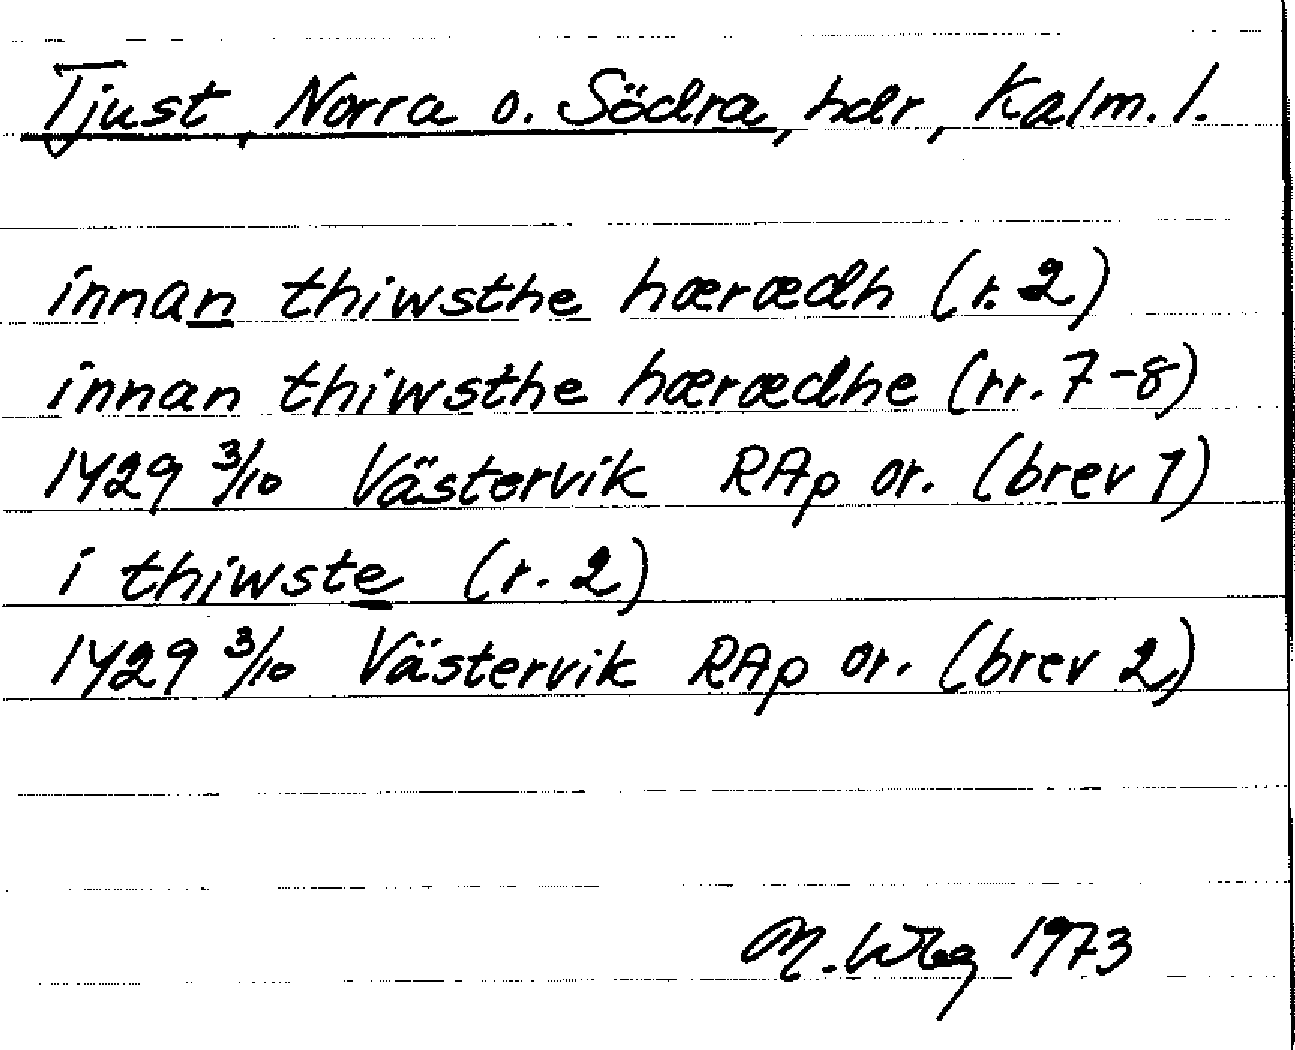 Tjust, Norra o. Södra, hdr, Kalm. l.
innan thiwsthe hærædh (r. 2)
innan thiwsthe hærædhe (rr. 7-8)
1429 3/10 Västervik RAp or. (brev 1)
i thiwste (r. 2)
1429 3/10 Västervik RAp or. (brev 2)
M. Wbg 1973